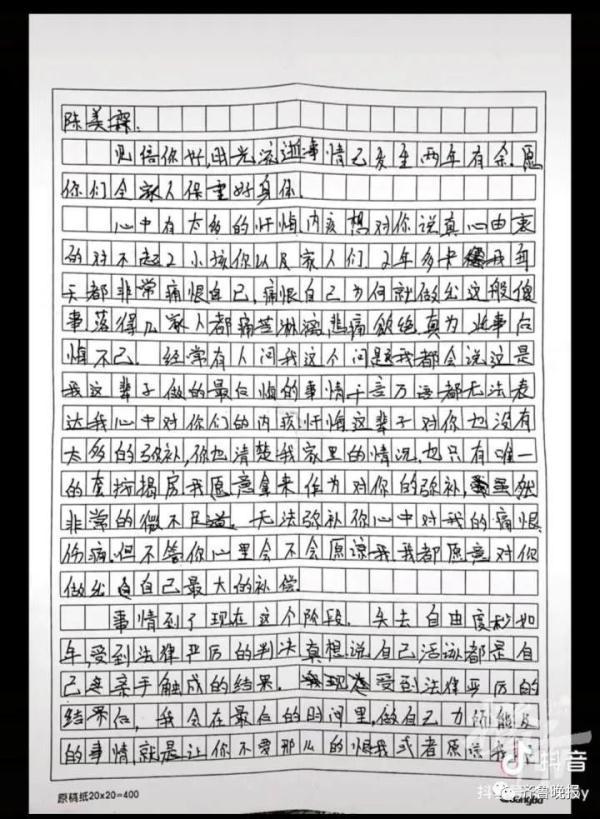 陈美霖.
见信你好,时光流逝事情已发至两年有余.愿
你们全家人保重好身体.
心中有太多的忏悔内疚想对你说真心由衷
的对不起2小孩你以及家人们.2年多来我每
天都非常痛恨自己,痛恨自己为何就做出这般傻
事落得几家人都痛苦淋漓,悲痛欲绝真为此事后
悔不已.经常有人问我这个问题我都会说这是
我这辈子做的最后悔的事情千言万语都无法表
达我心中对你们的内疚忏悔这辈子对你也没有
太多的弥补,你也清楚我家里的情况,也只有唯一
的套按揭房我愿意拿来作为对你的弥补,虽然
非常的微不足道.无法弥补你心中对我的痛恨
伤痛.但不管你心里会不会原谅我,我都愿意对你
做出自己最大的补偿.
事情到了现在这个阶段.失去自由度秒如
年,受到法律严厉的判决真想说自己活该都是自
己亲手触成的结果.我现在受到法律严厉的
结果后,我会在最后的时间里,做自己力所能及
的事情,就是让你不要那么的恨我或者原谅我
原稿纸20×20=400
Guangbo
抖音
齐鲁晚报